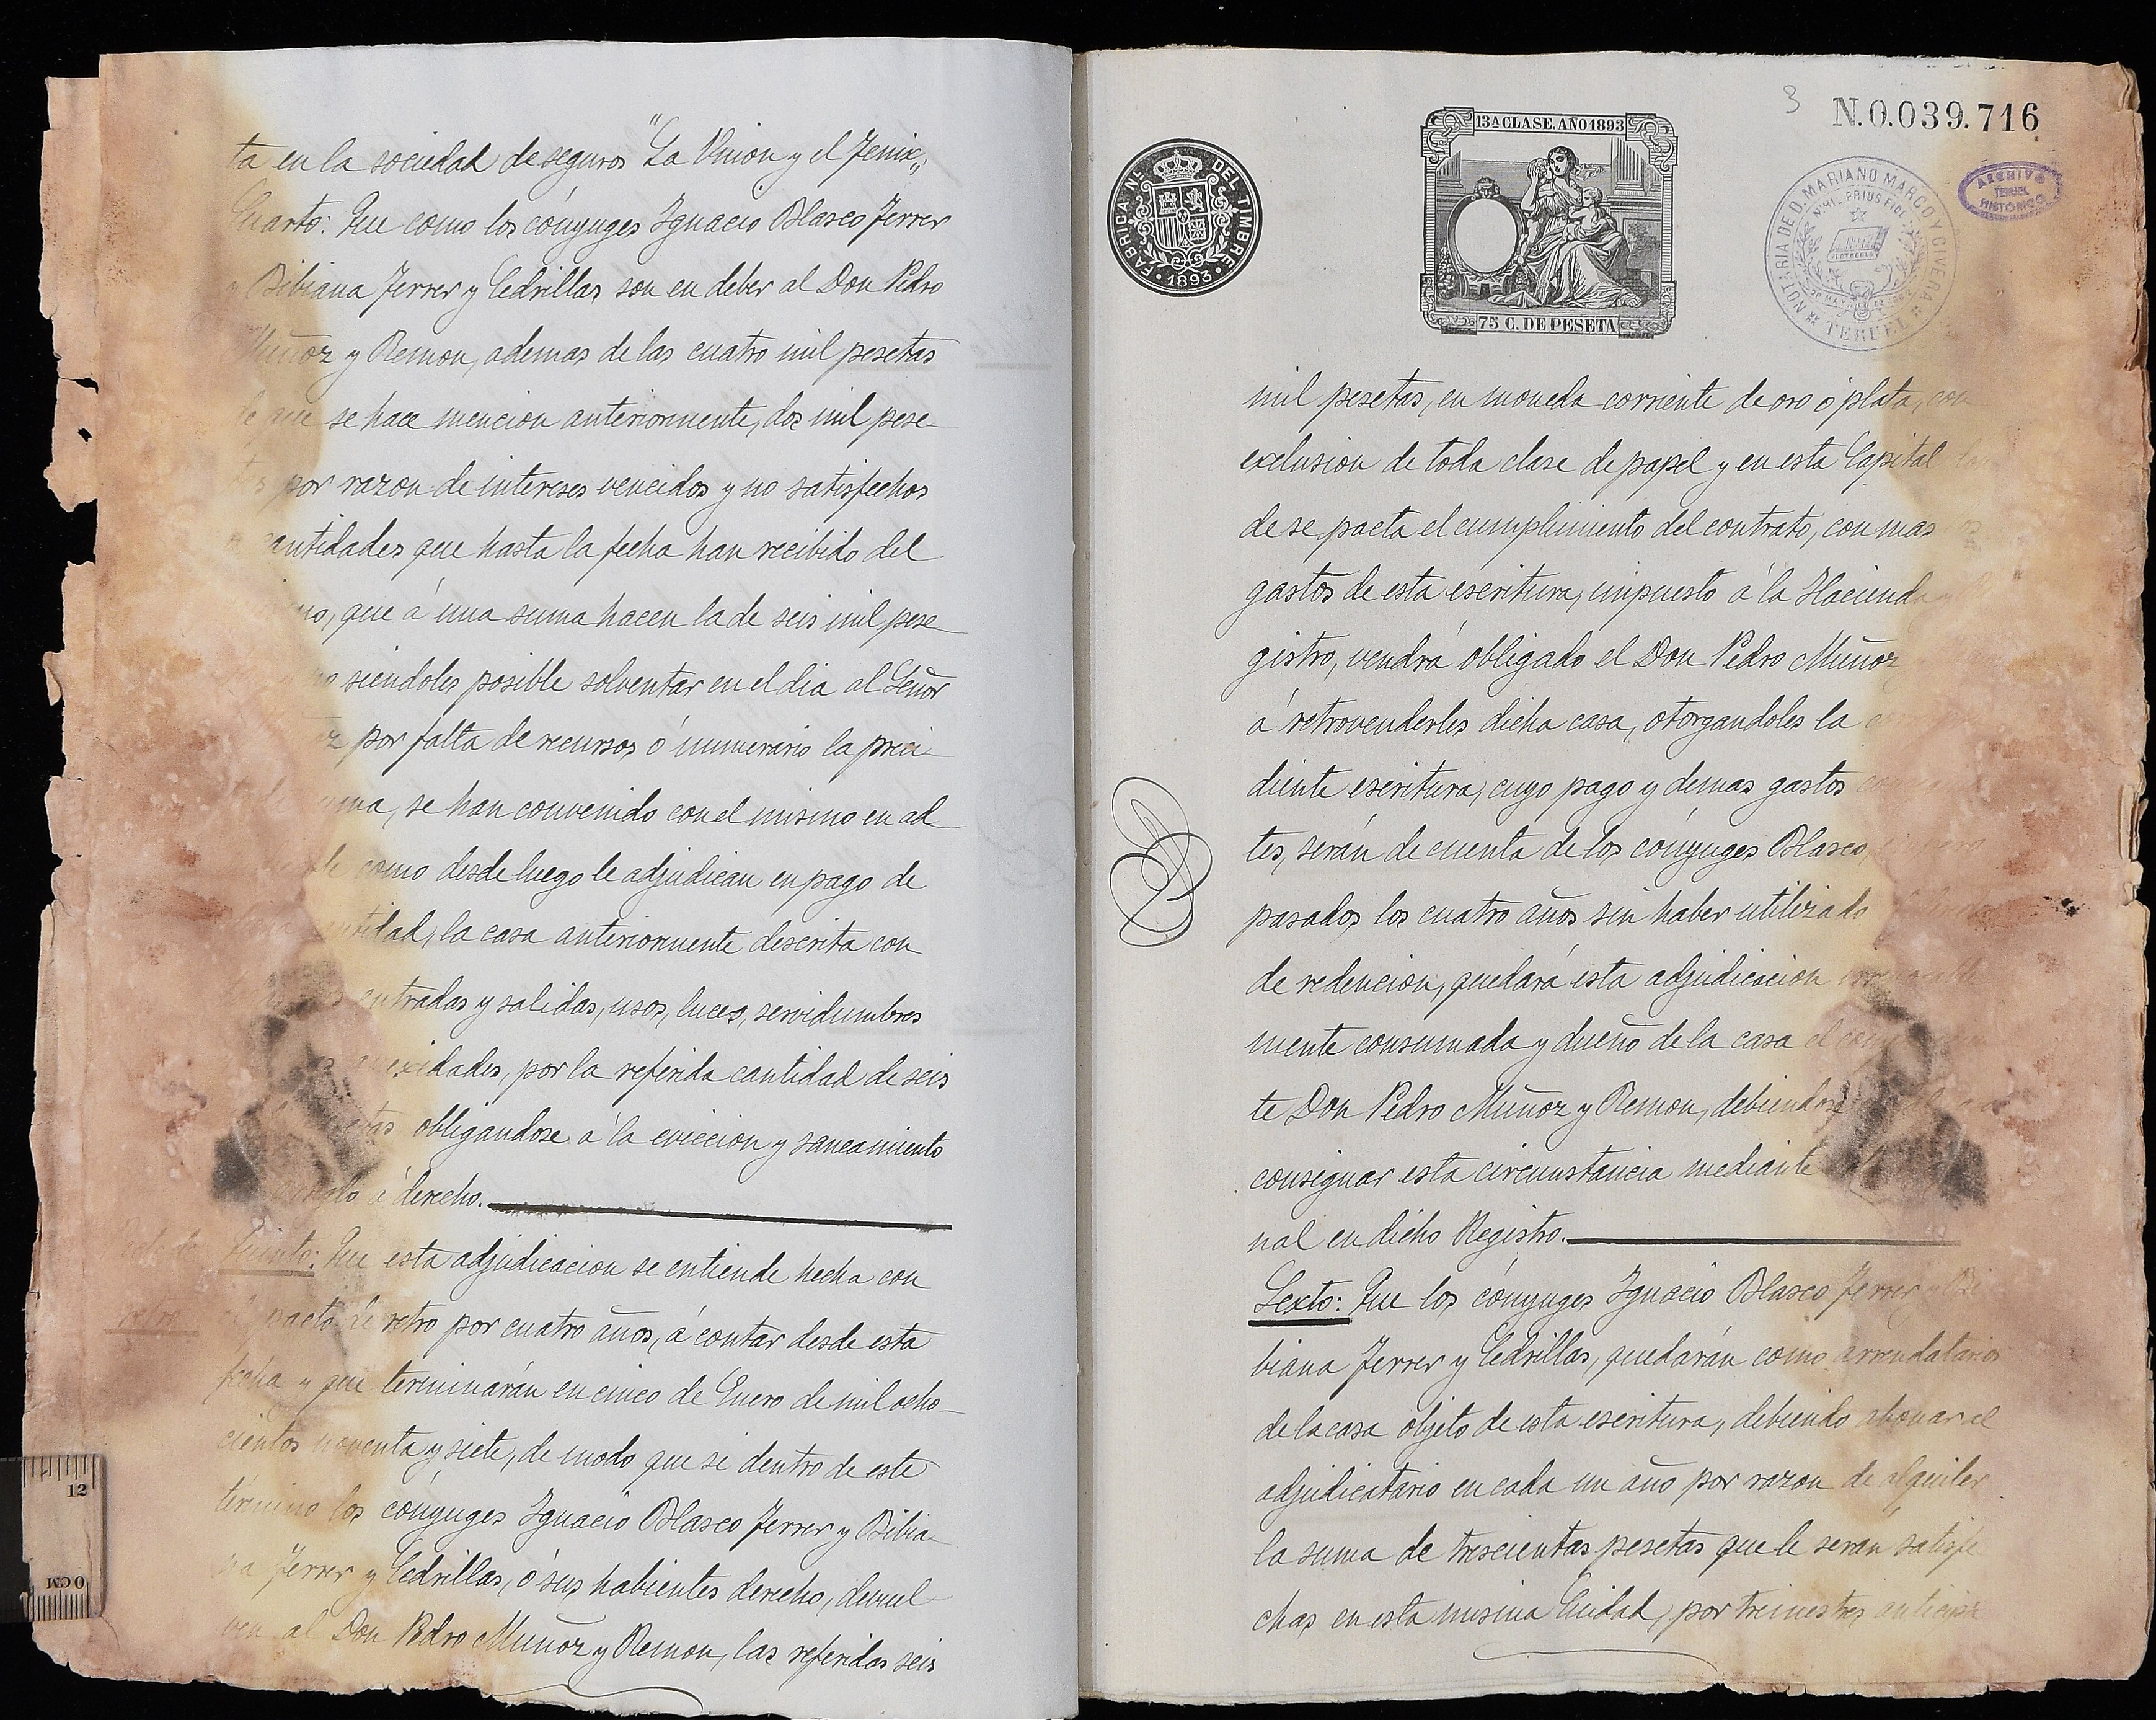 ta en la sociedad de seguros "La Union y el Fenix„
Cuarto: Que como los cónyuges Ignacio Blasco Ferrer
y Bibiana Ferrer y Cedrillas son en deber al Don Pedro
Muñoz y Remon, ademas de las cuatro mil pesetas
de que se hace mencion anteriormente, dos mil pese-
tas por razon de intereses vencidos y no satisfechos
cantidades que hasta la fecha han recibido del
que á una suma hacen la de seis mil pese-
siendoles posible solventar en el dia al Señor
por falta de recursos ó numerario la preci-
se han convenido con el mismo en ad-
como desde luego le adjudican en pago de
la casa anteriormente descrita con
entradas y salidas, usos, luces, servidumbres
por la referida cantidad de seis
obligandose á la eviccion y saneamiento
á derecho.
Quinto: Que esta adjudicacion se entiende hecha con
pacto de retro por cuatro años, á contar desde esta
retro
fecha y que terminarán en cinco de Enero de mil ocho-
cientos noventa y siete, de modo que si dentro de este
término los cónyuges Ignacio Blasco Ferrer y Bibia-
na Ferrer y Cedrillas, ó sus habientes derecho, devuel-
ven al Don Pedro Muñoz y Remon, las referidas seis
3
N.0.039.716
13A CLASE. AÑO 1893
75 C. DE PESETA
FABRICA Nª DEL TIMBRE
1893
NOTARIA DE D. MARIANO MARCO Y CIVERA
NIHIL PRIUS FIDE
TERUEL
ARCHIVO
TERUEL
HISTÓRICO
mil pesetas, en moneda corriente de oro ó plata, con
exclusion de toda clase de papel y en esta Capital
de se pacta el cumplimiento del contrato, con mas los
gastos de esta escritura, impuesto á la Hacienda y
gistro, vendrá obligado el Don Pedro Muñoz
á retrovenderles dicha casa, otorgandoles la
diente escritura, cuyo pago y demas gastos
tes, serán de cuenta de los cónyuges Blasco,
pasados los cuatro años sin haber utilizado
de redencion, quedará esta adjudicacion irrevocable
mente consumada y dueño de la casa el
te Don Pedro Muñoz y Remon, debiendose
consignar esta circunstancia mediante
nal en dicho Registro.
Sexto: Que los cónyuges Ignacio Blasco Ferrer y Bi
biana Ferrer y Cedrillas, quedarán como arrendatarios
de la casa objeto de esta escritura, debiendo abonar al
adjudicatario en cada un año por razon de alquiler
la suma de trescientas pesetas que le serán satisfe
chas en esta misma Ciudad, por trimestres